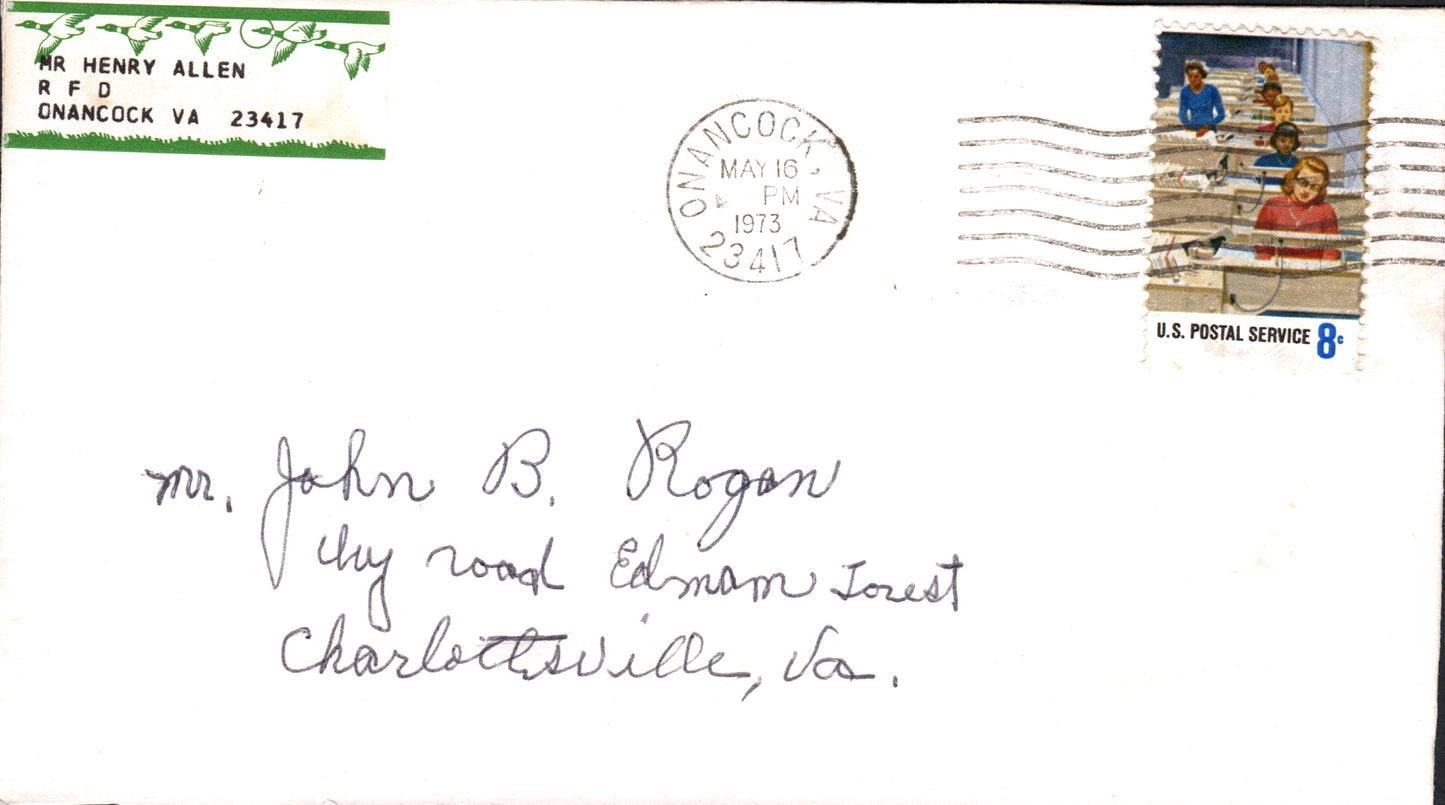 MR HENRY ALLEN
R F D
ONANCOCK VA 23417
ONANCOCK, VA
MAY 16
PM
1973
23417
U.S. POSTAL SERVICE 8c
Mr. John B. Rogan
Ivy road Ednam Forest
Charlottsville, Va.